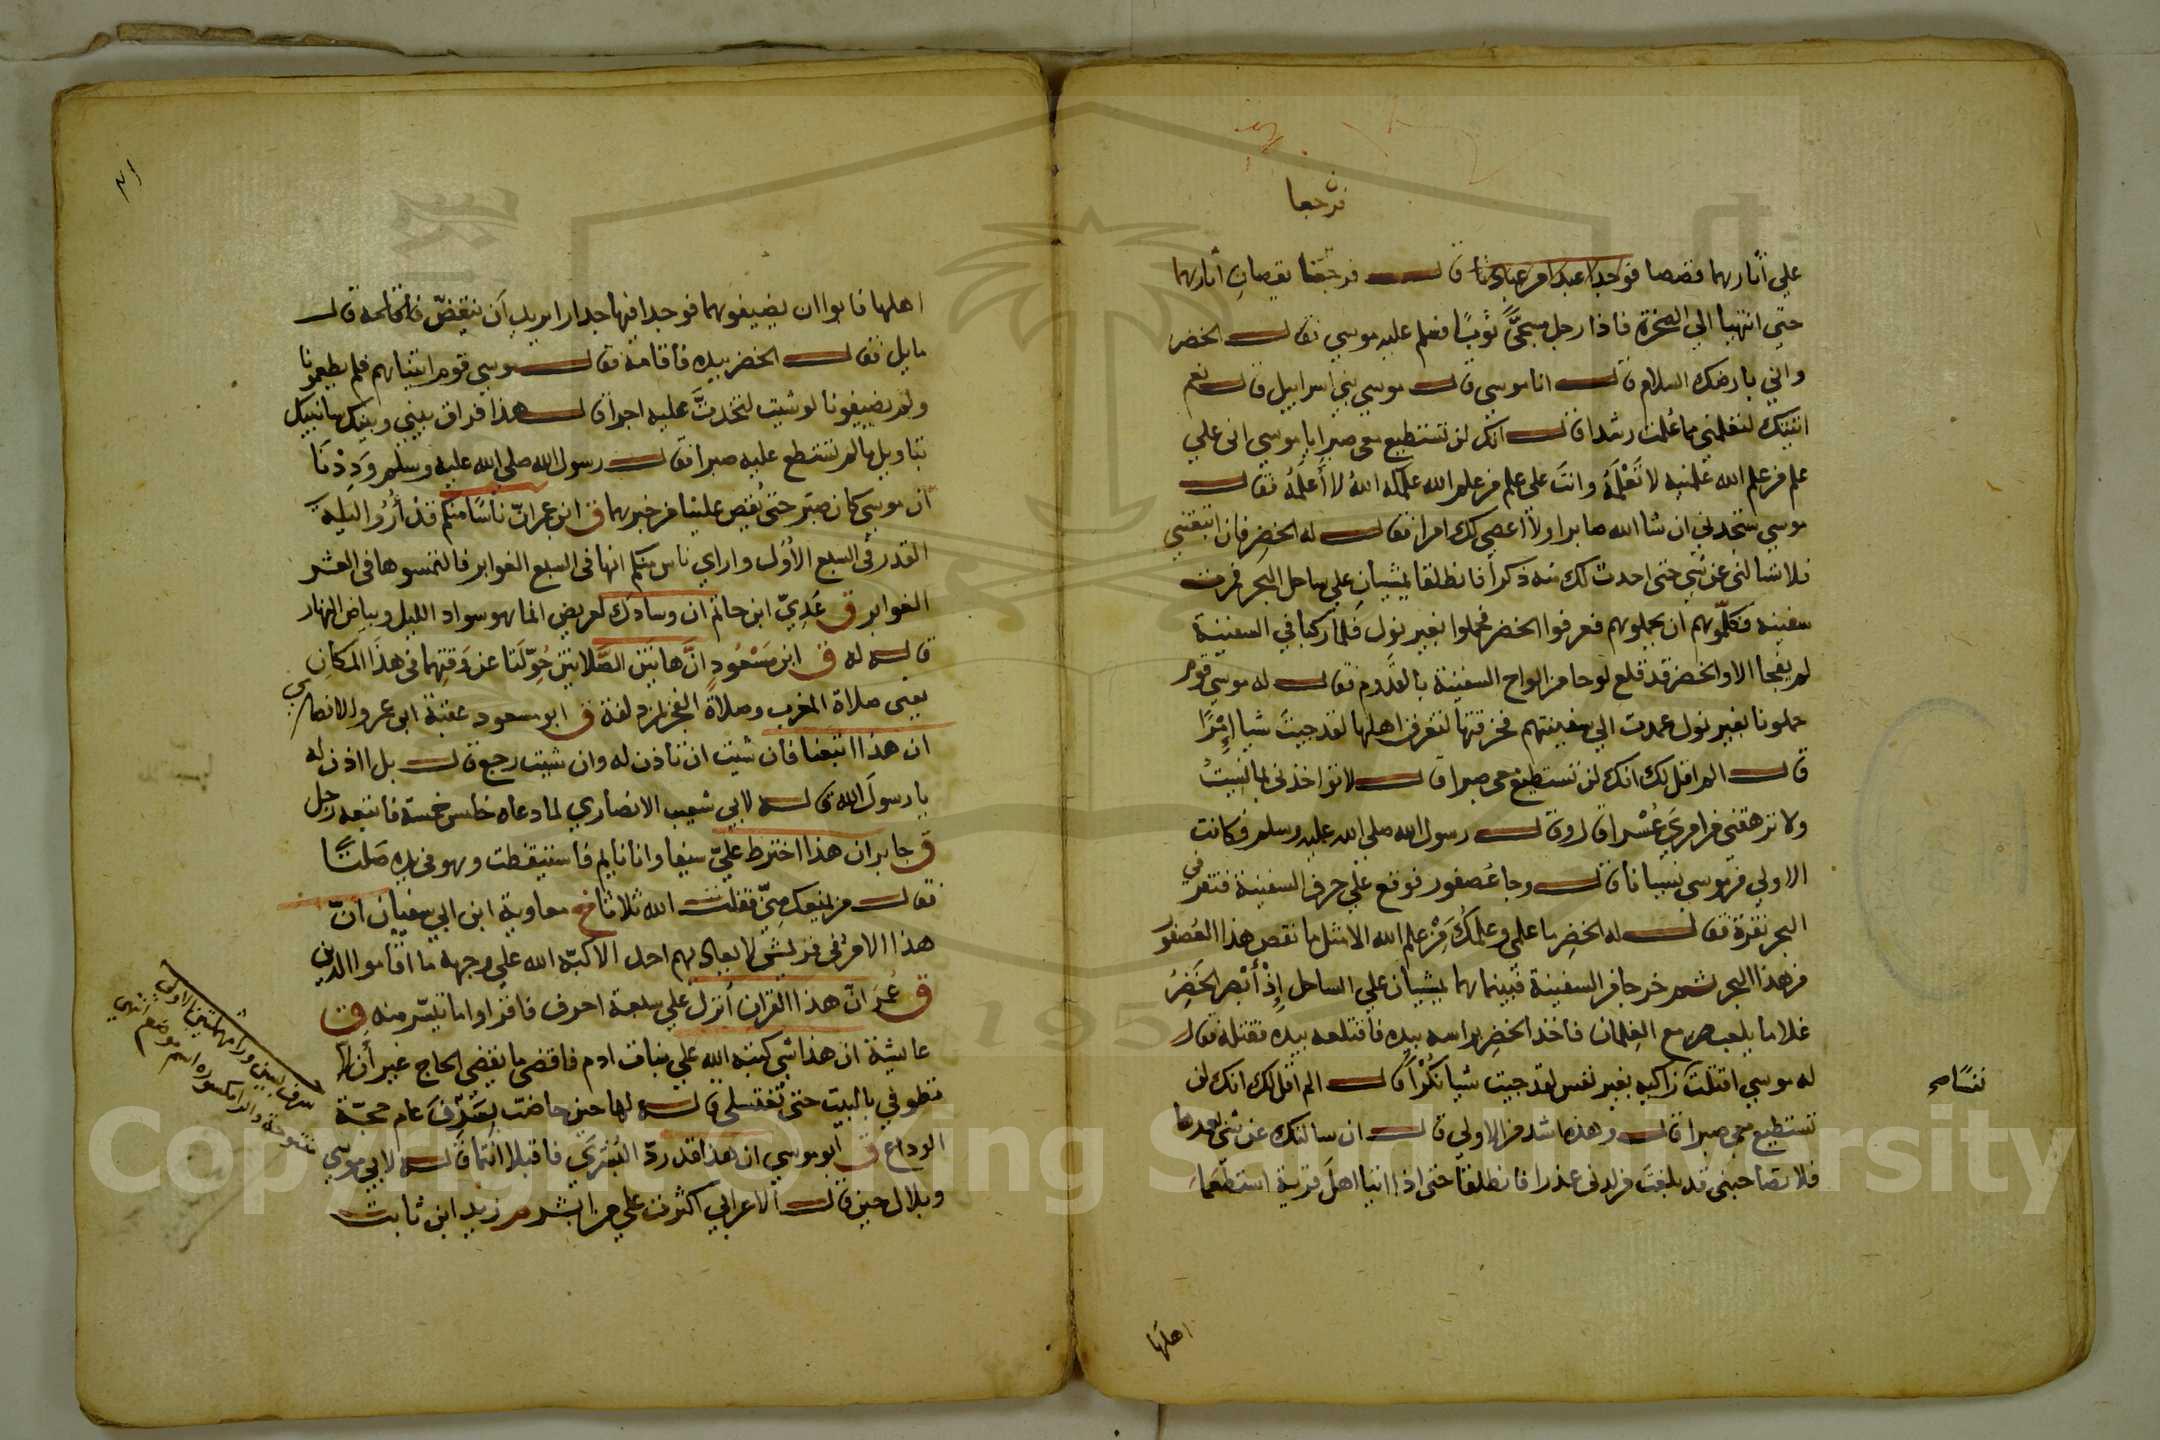 فرجعا
علي أثارهما قصصا فوجدا عبدا من عبادنا قال فرجعا يقصان أثارهما
حتى انتهيا الى الصخرة فاذا رجل مسجًّى ثوبًا فسلم عليه موسي فقال الخضر
واني بارضك السلام قال انا موسى قال موسى بني اسراييل قال نعم
اتيتك لتعلمني مما علمت رشدا قال انك لن تستطيع معي صبرا يا موسي انى علي
علم من علم الله علمنيه لا تَعْلَمُهُ وانتَ على علم من علم الله علمكه اللهُ لا أَعلمُهُ فقال
موسي ستجدني ان شا الله صابرا ولا اعصي لك امرا فقال له الخضر فان اتبعتني
فلا تسالني عن شي حتى احدث لك منه ذكرا فانطلقا يمشيان علي ساحل البحر فمرت
سفينة فكلموهم ان يحملوهم فعرفوا الخضر فحملوا بغير نول فلما ركبا في السفينة
لم يفجا الا والخضر قد قلع لوحا من الواح السفينة بالقدوم فقال له موسي قوم
حملونا بغير نول عمدت الي سفينتهم فخرقتها لتغرق اهلها لقد جيت شيا إمْرًا
قال الم اقل لك انك لن تستطيع معي صبرا قال لا تواخذني بما نسيتُ
ولا ترهقني من امري عُسْرا قال وقال رسول الله صلي الله عليه وسلم وكانت
الاولي من موسي نسيانا قال وجا عُصفور فوقع علي حرف السفينة فنقر في
البحر نقرة فقال له الخضر ما علمي وعلمك مِنْ علم الله الا مثل ما نقص هذا العُصفور
من هذا البحر ثم خرجا من السفينة فبينما هما يمشيان علي الساحل إِذْ أَبْصر الخضِرُ
غلاما يلعب مع الغِلمان فأخذ الخضر براسه بيده فأقتلعه بيده فقتله فقال
له موسي اقتلتَ زاكية بغير نفس لقد جيت شيا نُكْرًا قال الم اقل لك انك لن
نفسًا صح
تستطيع معي صبرا قال وهذه اشد من الاولي قال ان سالتك عن شي بعدها
فلا تصاحبني قد بلغتَ من لدني عذرا فانطلقا حتى اذا اتيا اهلَ قرية استطعما
اهلها
اهلها فابوا ان يضيفوهما فوجدا فيها جدارا يريد أن ينقضّ فأقامه قال
مايل فقال الخضر بيده فأقامة فقال موسي قوم اتيناهم فلم يطعمونا
ولم يضيفونا لو شيت لتخذتَّ عليه اجرا قال هذا فراق بيني وبينك سانبيك
بتاويل ما لم تستطع عليه صبرا فقال رسول الله صلي الله عليه وسلم وَدِدْنَا
ان موسي كان صبَر حتى يُقص علينا من خبرهما ق ابن عمر انّ ناسًا منكم قدْ أُرُوا ليلة
القدر في السبع الأُوَل واراي ناس منكم انها في السبع الغوابر فالتمسوها في العشر
الغوابر ق عَدِيّ ابن حاتم ان وسادك لعريض انما هو سواد الليل وبياض النهار
قاله له ق ابن مَسْعُودٍ انَّ هاتين الصَّلاتين حُوّلَتا عن وقتهما في هذا المكانِ
يعني صلاة المغرب وصلاة الفجر لمزدلفة ق ابو مسعود عقبة ابن عمرو الانصاري
ان هذا اتبعنا فان شيت ان تأذن له وان شيت رجع قال بل ااذن له
يا رسول الله قاله لابي شعيب الانصاري لما دعاه خامس خمسة فاتبعه رجل
ق جابر ان هذا اخترط عليّ سيفا وانا نايم فاستيقظت وهو في يده صَلتًا
فقال من يمنعك مِنّي فقلت الله ثلاثا خ معاوية ابن ابي سفيان انّ
هذا الامر في قريش لا يعاديهم احد الا كبّه الله علي وجهه ما اقاموا الدين
ق عُمَر انّ هذا القران أُنزل علي سبعة احرف فاقراوا ما تيسّر منه ق
عايشة ان هذا شي كتبه الله علي بنات ادم فاقضي ما يقضي الحاج غير أن لا
تطوفي بالبيت حتى تغتسلي قاله لها حين حاضت بِسَرِفَ عام حجّة
الوداع ق ابو موسي ان هذا قد ردّ البُشري فاقبلا انتما قاله لابي موسي
وبلال حين قال الاعرابي اكثرت علي من ابشر م زيد ابن ثابت